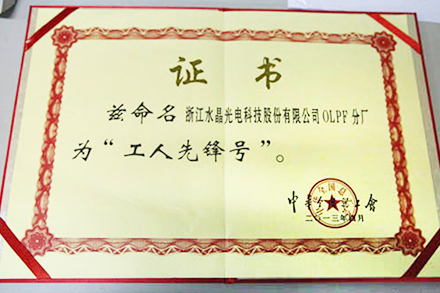 证书
兹命名 浙江水晶光电科技股份有限公司OLPF分厂
为“工人先锋号”。
中 会
二〇一三年四月